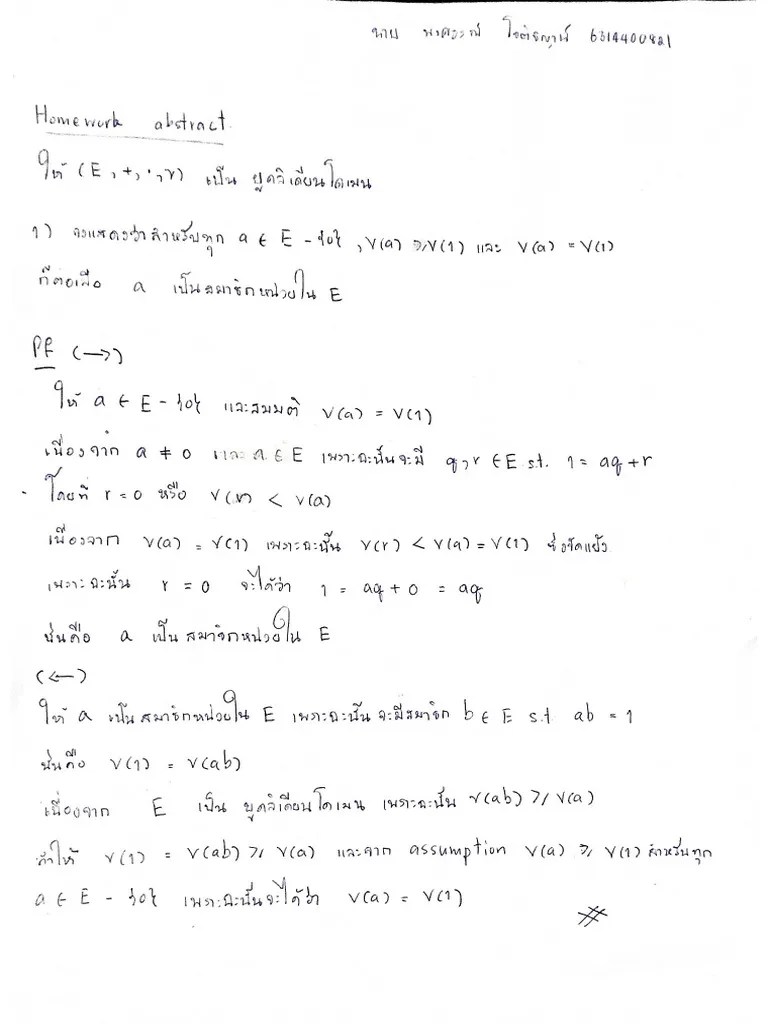 นาย โชติชญาน์ 6314400821
Homework abstract
ให้ (E, +, ·, v) เป็น ยูคลิเดียนโดเมน
1) จงแสดงว่าสำหรับทุก a ∈ E - {0}, v(a) ⩾ v(1) และ v(a) = v(1)
ก็ต่อเมื่อ a เป็นสมาชิกหน่วยใน E
Pf (→)
ให้ a ∈ E - {0} และสมมติ v(a) = v(1)
เนื่องจาก a ≠ 0 และ a ∈ E เพราะฉะนั้นจะมี q, r ∈ E s.t. 1 = aq + r
โดยที่ r = 0 หรือ v(r) < v(a)
เนื่องจาก v(a) = v(1) เพราะฉะนั้น v(r) < v(a) = v(1) ซึ่งขัดแย้ง
เพราะฉะนั้น r = 0 จะได้ว่า 1 = aq + 0 = aq
นั่นคือ a เป็นสมาชิกหน่วยใน E
(←)
ให้ a เป็นสมาชิกหน่วยใน E เพราะฉะนั้นจะมีสมาชิก b ∈ E s.t. ab = 1
นั่นคือ v(1) = v(ab)
เนื่องจาก E เป็น ยูคลิเดียนโดเมน เพราะฉะนั้น v(ab) ⩾ v(a)
ทำให้ v(1) = v(ab) ⩾ v(a) และจาก assumption v(a) ⩾ v(1) สำหรับทุก
a ∈ E - {0} เพราะฉะนั้นจะได้ว่า v(a) = v(1)
#